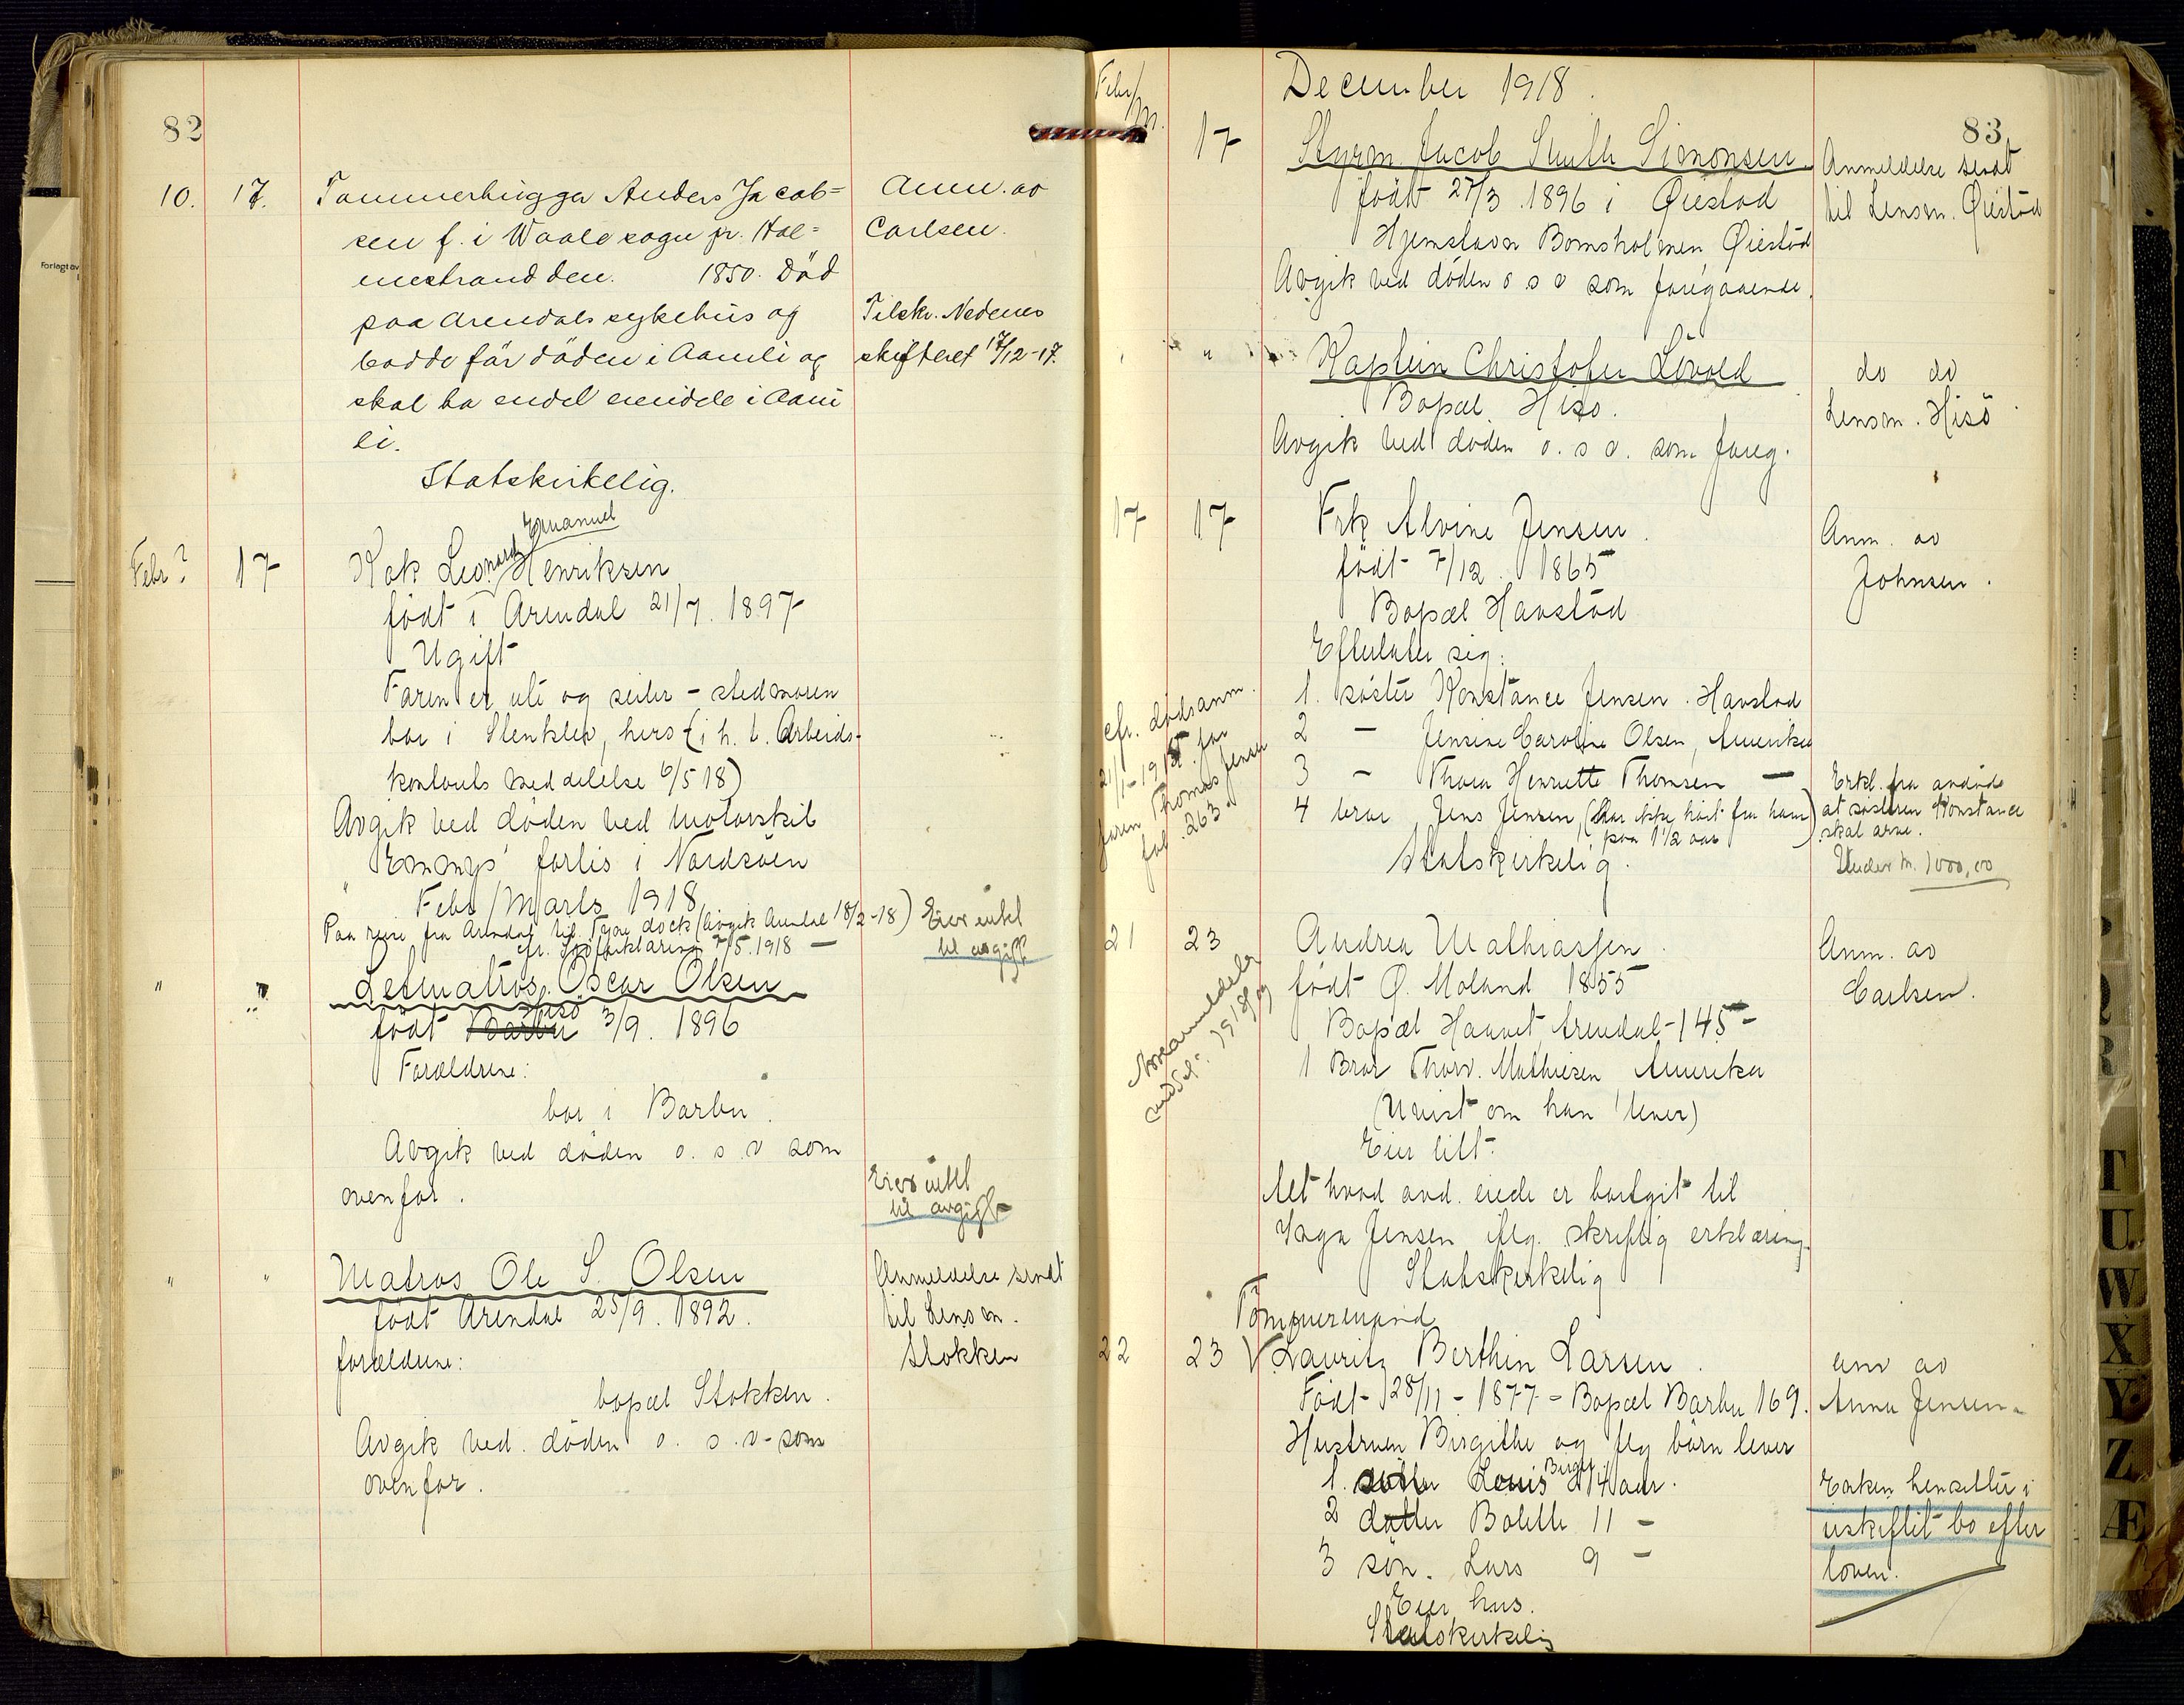 82
10. 17. Tømmerhugger Anders Jacob=
sen f. i Waale sogn pr. Hol=
mestrand den. 1850. Død
paa Arendals sykehus og
bodde før døden i Aamli og
skal ha endel eiendele i Aam
li.
Statskirkelig.
Anm. av
Carlsen.
Tilskr. Nedenes
skifteret 17/12-17.
Emanuel
Febr? 17 Kok Leonard Henriksen
født i Arendal 21/7. 1897
Ugift
Faren er ute og seiler - stedmoren
bor i Slenkler, hers (i h. t. Arbeids-
kontorets meddelelse 6/5 18)
Avgik ved døden ved motorskib
"Emmys" forlis i Nordsøen
Febr/Marts 1918
Paa reise fra Arendal til Tyne dock (Avgik Arendal 18/2-18)
cfr. Sjøforklaring 7/5. 1918 -
Eier intet
til avgift
" " Letmatros Oscar Olsen
Hisö
født Barbu 3/9. 1896
Forældrene:
bor i Barbu.
Avgik ved døden o. s. v som
ovenfor.
Eier intet
til avgift
" " Matros Ole S. Olsen
født Arendal 25/9. 1892.
forældrene:
bopæl Stokken.
Avgik ved døden o. s. v. som
ovenfor.
Anmeldelse sendt
til Lensm.
Stokken
December 1918.
83
Febr/M. 17 Styrm. Jacob Smith Simonsen
født 27/3 1896 i Øiestad
Hjemstavn Bomsholmen Øiestad
Avgik ved døden o s v som foregaaende.
Anmeldelse sendt
til Lensm. Øiestad
" Kaptein Christofer Lövold
Bopæl Hisö.
Avgik ved døden o. s v. som foreg.
do do
Lensm. Hisö
17 17 Frk Alvine Jensen.
født 7/12 1865
Bopæl Havstad
Efterlater sig:
1. søster Konstance Jensen. Havstad
2 - Jensine Caroline Olsen, Amerika
3 - Thora Henriette Thomsen -
4 bror Jens Jensen, (Har ikke hört fra ham
paa 1 1/2 aar)
Statskirkelig.
Anm. av
Johnsen.
cfr. dødsanm.
21/1-1918 for
faren Thomas Jensen
fol. 263.
Erkl. fra avdöde
at søsteren Konstance
skal arve.
Under M. 1000,00
21 23 Andrea Mathiassen
født Ø. Moland 1855
Bopæl Havnet Arendal - 145 -
1 Bror Thorv. Mathiesen Amerika
(Uvist om han lever)
Eier litt.
Alt hvad avd. eiede er bortgit til
Inga Jensen iflg. skriftlig erklæring.
Statskirkelig
Anm. av
Carlsen.
Tømmermand
22 23 Lauritz Berthin Larsen.
Født 28/11 - 1877 - Bopæl Barbu 169.
Hustruen Birgithe og flg börn lever
1. Louis Birger 14 aar.
2 datter Bolette 11 -
3 søn. Lars 9 -
Eier hus.
Statskirkelig
anm av
Anna Jensen.
Enken hensitter i
uskiftet bo efter
loven.